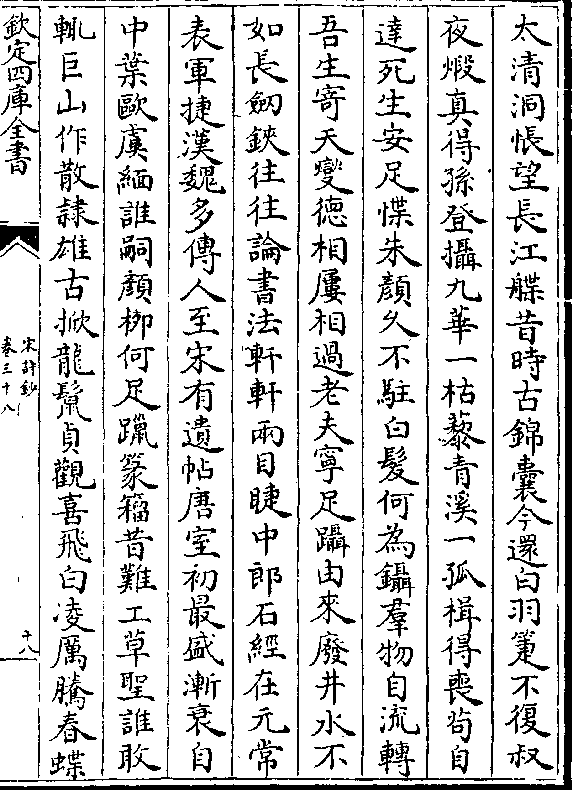 太清洞悵望長江艓昔時古錦囊今還白羽箑不復叔
夜煅真得孫登攝九華一枯藜青溪一孤楫得喪茍自
達死生安足惵朱顔久不駐白髮何為鑷羣物自流轉
吾生寄天變德相屢相過老夫寧足躡由來廢井水不
如長劒鋏往往論書法軒軒兩目睫中郎石經在元常
表軍捷漢魏多傳人至宋有遺帖唐室初最盛漸衰自
中葉歐虞緬誰嗣顔栁何足躐篆籀昔難工草聖誰敢
輒巨山作散隷雄古掀龍鬛貞觀喜飛白凌厲騰春蝶
欽定四庫全書
宋詩鈔
卷三十八
十八